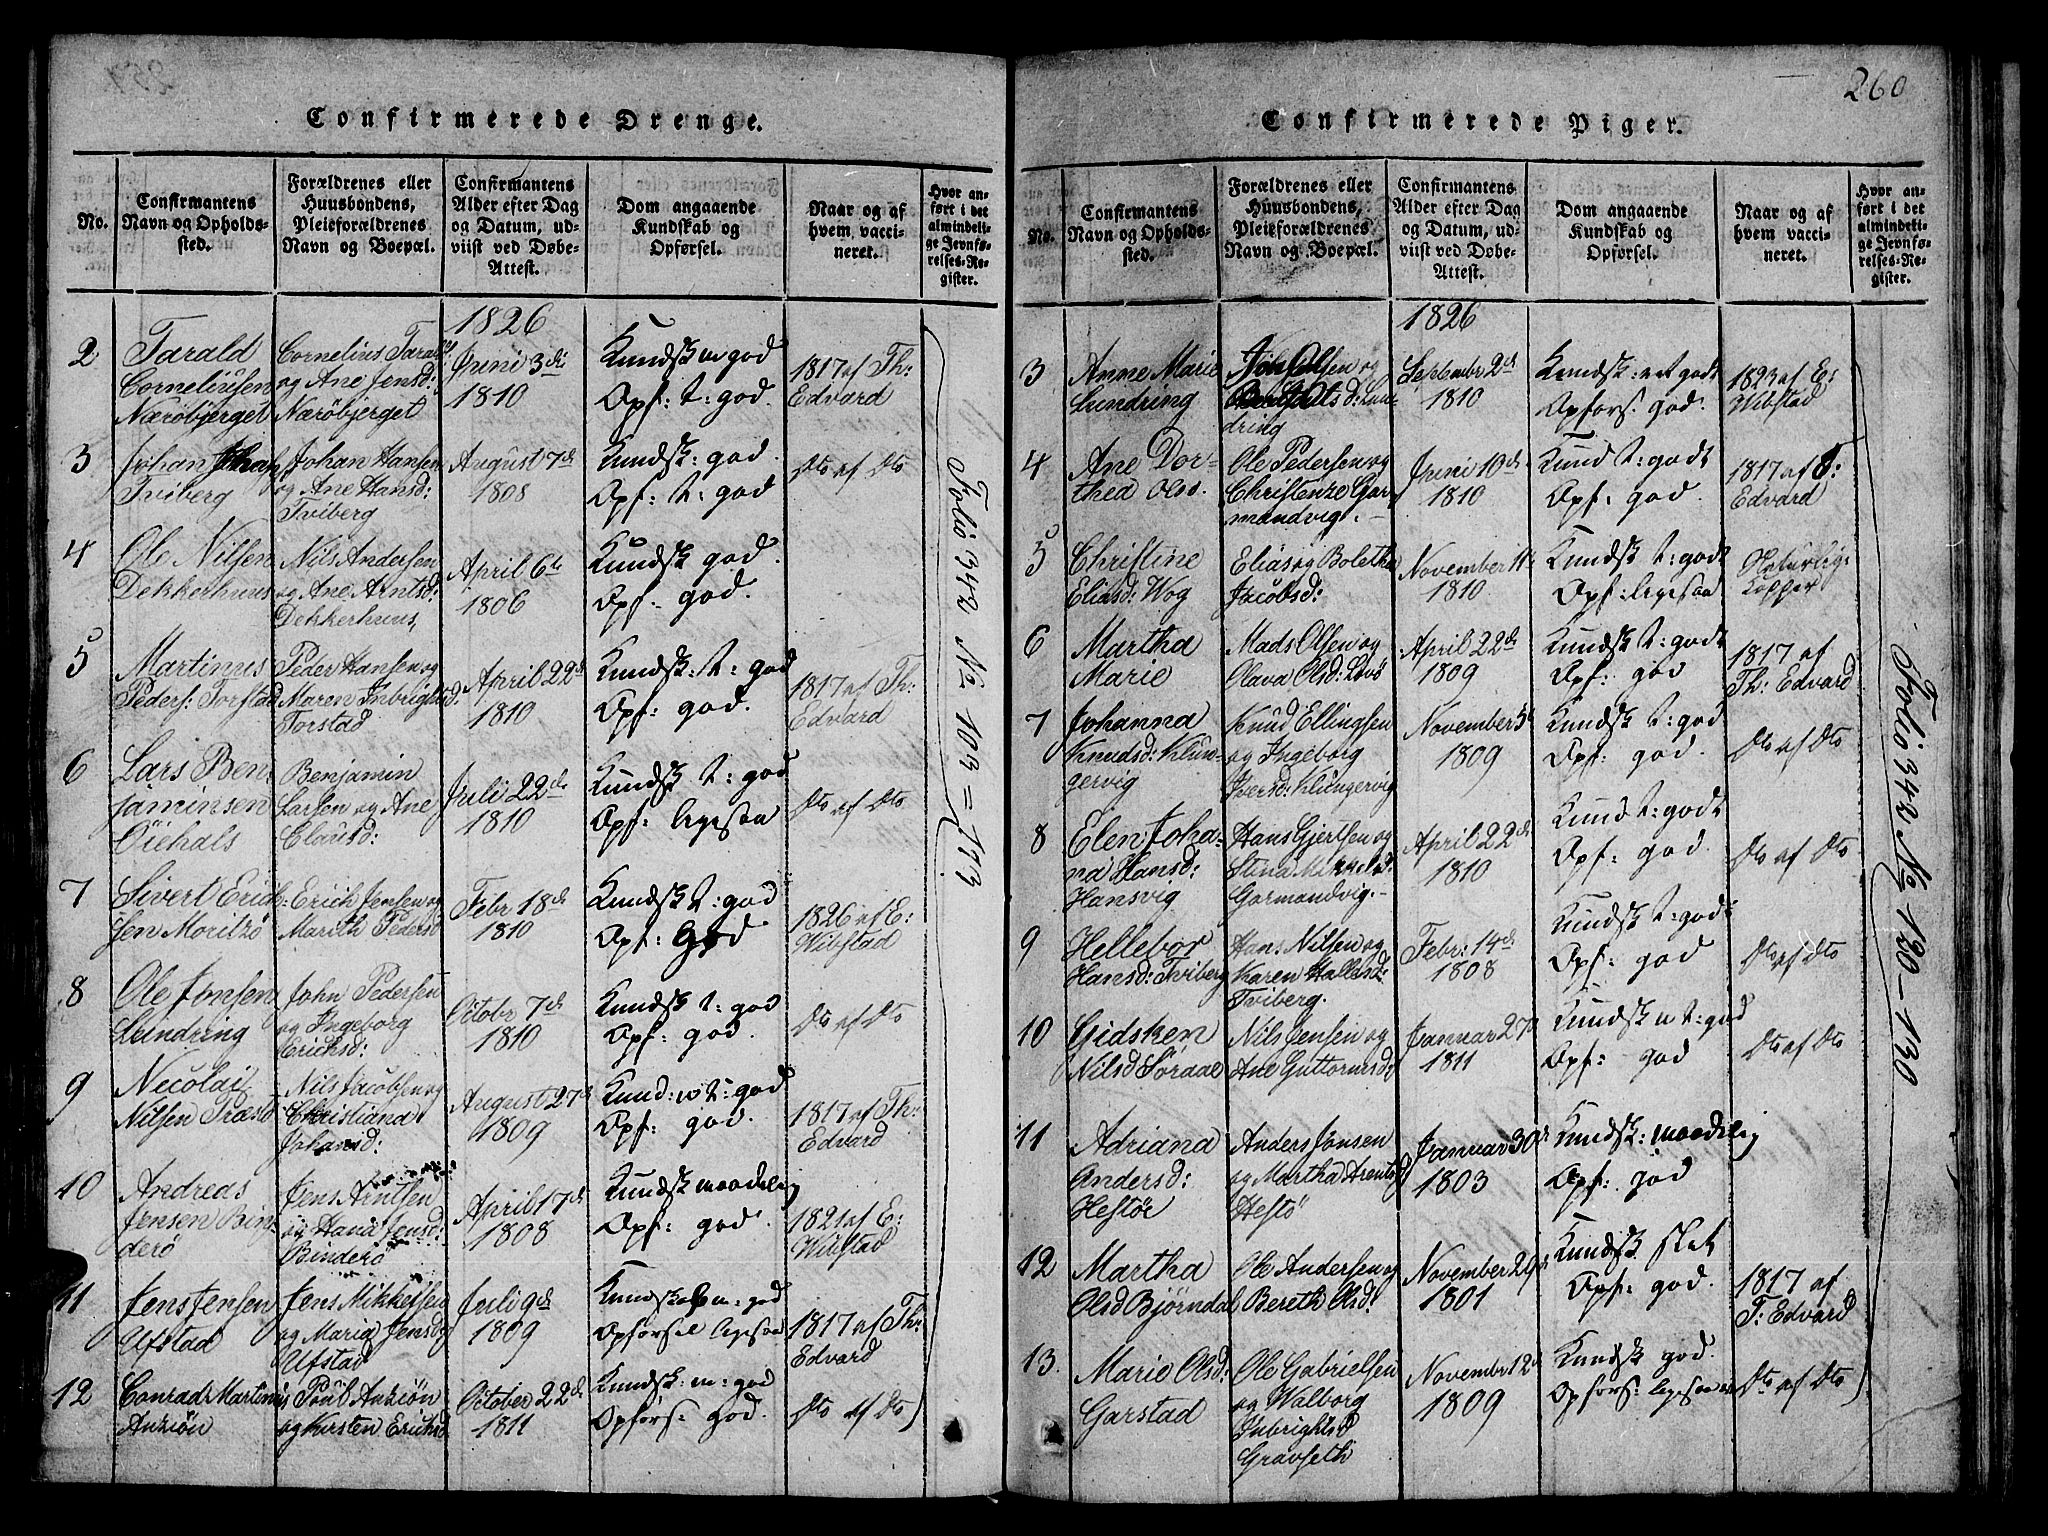 260
Confirmerede Drenge.
No.
Confirmantens
Navn og Opholds-
sted.
Forældrenes eller
Huusbondens,
Pleieforældrenes
Navn og Boepæl.
Confirmantens
Alder efter Dag
og Datum, ud-
viist ved Døbe-
Attest.
Dom angaaende
Kundskab og
Opførsel.
Naar og af
hvem, vacci-
neret.
Hvor an-
ført i det
almindeli-
ge Jevnfø-
relses-Re-
gister.
1826
2
Tarald
Corneliussen
Nærøbjerget
Cornelius Tarald
og Ane Jensd:
Nærøbjerget
Juni 3di
1810
Kundsk m god
Opf: t: god.
1817 af Th:
Edvard
3
Johan Johan
Tviberg
Johan Hansen
og Ane Hansd:
Tviberg
August 7de
1808
Kundsk: god.
Opf: t: god
Do af Do
4
Ole Nilsen
Dekkerhuus
Nils Andersen
og Ane Arntsd:
Dekkerhuus,
April 6te
1806
Kundsk god.
Opf: god.
5
Martinus
Peders: Torstad
Peder Hansen og
Maren Inbrigtsd:
Torstad
April 22d
1810
Kundsk: t: god
Opf: god.
1817 af Th:
Edvard
6
Lars Ben:
jaminsen
Öiehals
Benjamin
Larsen og Ane
Clausd:
Juli 22de
1810
Kundsk t: god
Opf: ligesaa
Do af Do
7
Sivert Erich:
sen Moritzø
Erich Jensen og
Marith Pedersd
Febr 18de
1810
Kundsk t: god
Opf: God
1826 af E:
Wibstad
8
Ole Jonsen
Lundring
John Pedersen
og Ingeborg
Erichsd:
Octobr 7de
1810
Kundsk t: god
Opf: god.
Do af Do
9
Necolai
Nilsen Træstø
Nils Jacobsen og
Christiana
Johansd:
August 27d
1809
Kund: n t: god
Opf: god.
1817 af Th:
Edvard
10
Andreas
Jensen Bin:
derø
Jens Arntsen
og Hana Jensd:
Binderø
April 17de
1808
Kundsk maadelig
Opf: god.
1821 af E:
Wibstad
11
Jens Jensen
Ufstad
Jens Mikkelsen
og Maria Jensd
Ufstad
Juli 9de
1809
Kundskab m: god
Opforsel ligesaa
1817 af Th:
Edvard
12
Conrad Martinus
Ankiön
Poul Ankiön
og Kirsten Erichsd
October 22de
1811
Kundsk: m: god
Opførs: god.
Do af Do
Folio 342 No 103=113
Confirmerede Piger.
No.
Confirmantens
Navn og Opholds-
sted.
Forældrenes eller
Huusbondens,
Pleieforældrenes
Navn og Boepæl.
Confirmantens
Alder efter Dag
og Datum, ud-
viist ved Døbe-
Attest.
Dom angaaende
Kundskab og
Opførsel.
Naar og af
hvem vacci-
neret.
Hvor an-
ført i det
almindeli-
ge Jevnfø-
relses-Re-
gister.
1826
3
Anne Marie
Lundring
Joh Olsen og
d: Lun
dring
Septembr 2de
1810
Kundsk: godt
Opførs: god.
1823 af E:
Wibstad
4
Ane Dor-
thea Olsd.
Ole Pedersen og
Christenze Gar
mandvig.
Juni 10de
1810
Kund t: godt
Opf: god.
1817 af T:
Edvard
5
Christine
Eliasd: Wog
Elias og Bolethe
Jacobsd:
November 11te
1810
Kundsk t: godt
Opf: ligesaa
Naturlig:
Kopper
6
Martha
Marie
Mads Olsen og
Olava Olsd: Lovø
April 22de
1809
Kundsk t: godt
Opf: god
1817 af
Th: Edvard
7
Johanna
Knudsd: Klun-
gervig
Knud Ellingsen
og Ingeborg
Iversd: Klungervig
November 5t
1809
Kundsk t: god
Opf: god.
Do af Do
8
Elen Joha-
na Hansd:
Hansvig
Hans Gjertsen og
Stina Mikkelsd:
Garmandvig.
April 22de
1810
Kund t: godt
Opf: god
Do af Do
9
Hellebor
Hansd: Tviberg
Hans Nilsen og
Karen Hallesd:
Tviberg.
Febr: 14de
1808
Kundsk t: godt
Opf: god
Do af Do
10
Gidsken
Nilsd Søraae
Nils Jensen og
Ane Guttormsd:
Januar 27d
1811
Kundsk n t: god
Opf: god
Do af Do
11
Adriana
Andersd:
Hestöe
Anders Jonsen
og Martha Arentsd
Hestö
Januar 30de
1803
Kundsk: maadelig
Opf: god
12
Martha
Olsd Bjørndal
Ole Andersen og
Bereth Olsd:
November 29d
1801
Kundsk slet
Opf: god.
1817 af
T: Edvard
13.
Marie Olsd:
Garstad
Ole Gabrielsen
og Walborg
Inbrightsd
Gravseth
November 12d
1809
Kundsk god.
Opførs: ligesaa
Do af Do
Folio 342 No 120-130